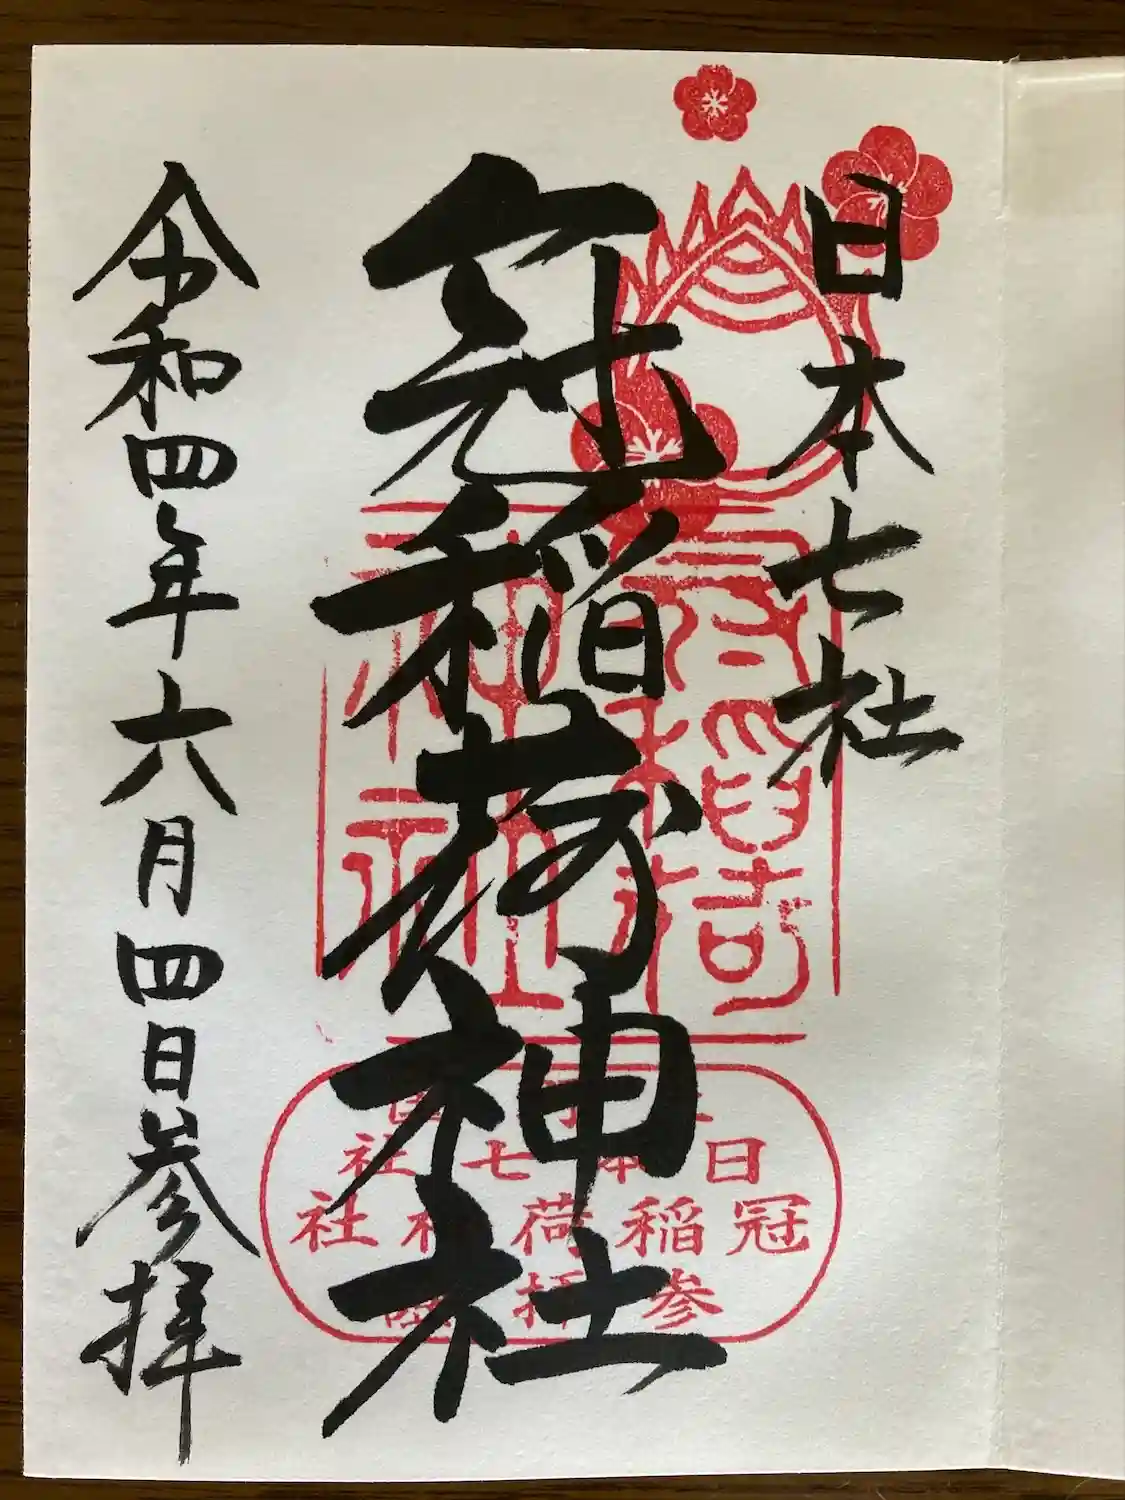 日本七社
冠稲荷神社
令和四年六月四日参拝
日本七社
冠稲荷神社
参拝